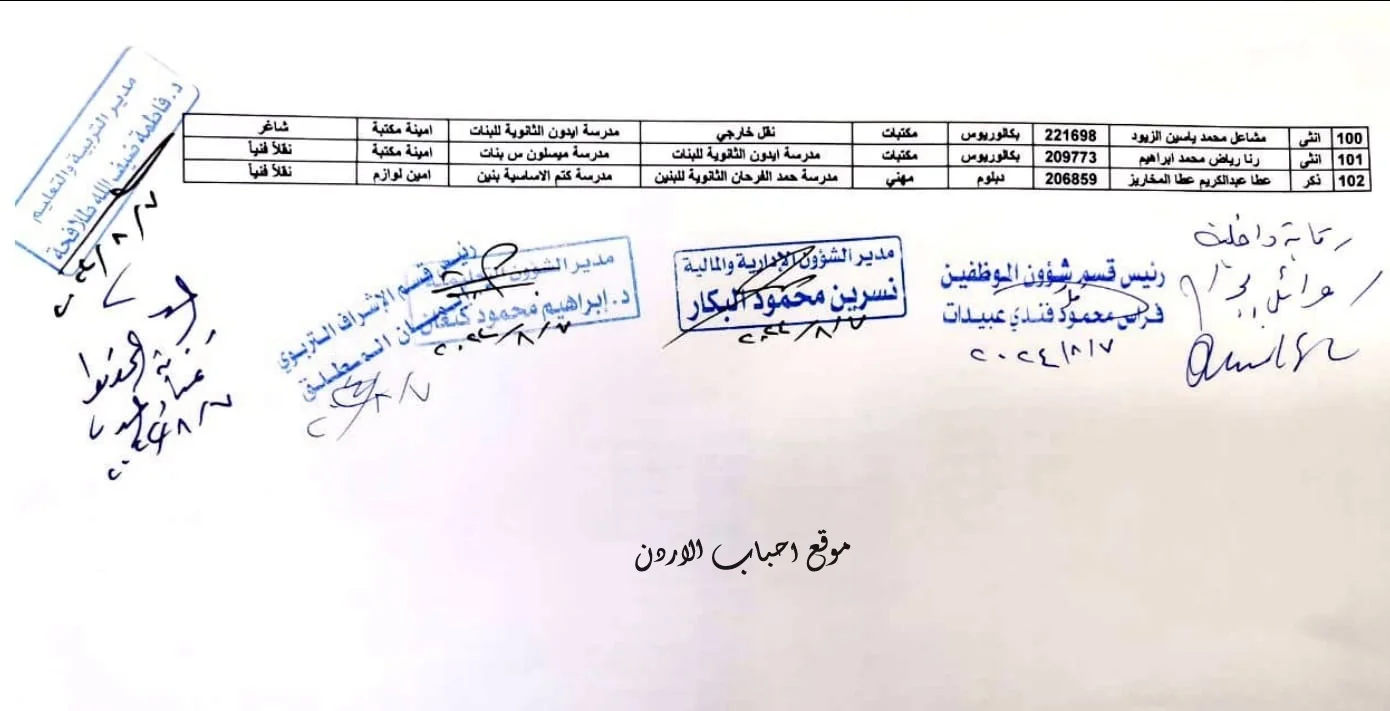 100 انثى مشاعل محمد ياسين الزيود 221698 بكالوريوس مكتبات نقل خارجي مدرسة ايدون الثانوية للبنات امينة مكتبة شاغر
101 انثى رنا رياض محمد ابراهيم 209773 بكالوريوس مكتبات مدرسة ايدون الثانوية للبنات مدرسة ميسلون س بنات امينة مكتبة نقلاً فنياً
102 ذكر عطا عبدالكريم عطا المخاريز 206859 دبلوم مهني مدرسة حمد الفرحان الثانوية للبنين مدرسة كتم الاساسية بنين امين لوازم نقلاً فنياً
رقابة داخلية
رئيس قسم شؤون الموظفين
فراس محمود فندي عبيدات
٢٠٢٤/٨/٧
مدير الشؤون الإدارية والمالية
نسرين محمود البكار
٢٠٢٤/٨/٧
مدير الشؤون التعليمية
د. إبراهيم محمود كنعان
٢٠٢٤/٨/٧
رئيس قسم الإشراف التربوي
مدير التربية والتعليم
د. فاطمة ضيف الله طلافحة
٢٠٢٤/٨/٧
موقع احباب الاردن